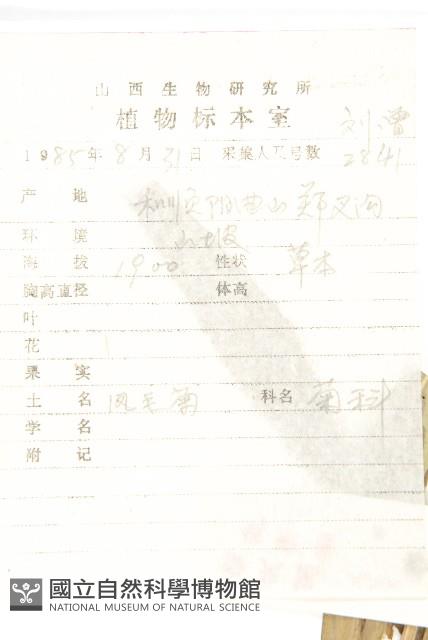 山西生物研究所
植物标本室
刘
1985年8月31日 采集人及号数 2841
产地 山
环境 山坡
海拔 1900 性状 草本
胸高直径 体高
叶
花
果实
土名 风毛菊 科名 菊科
学名
附记
國立自然科學博物館
NATIONAL MUSEUM OF NATURAL SCIENCE